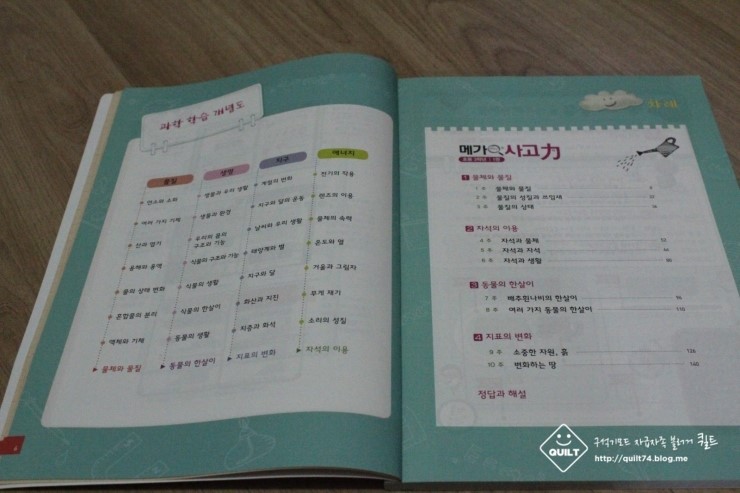 과학 학습 개념도
물질
연소와 소화
여러 가지 기체
산과 염기
용해와 용액
물의 상태 변화
혼합물의 분리
액체와 기체
물체와 물질
생명
생물과 우리 생활
생물과 환경
우리의 몸의
구조와 기능
식물의 구조와 기능
식물의 생활
식물의 한살이
동물의 생활
동물의 한살이
지구
계절의 변화
지구와 달의 운동
날씨와 우리 생활
태양계와 별
지구와 달
화산과 지진
지층과 화석
지표의 변화
에너지
전기의 작용
렌즈의 이용
물체의 속력
온도와 열
거울과 그림자
무게 재기
소리의 성질
자석의 이용
차례
메가 사고力
1 물체와 물질
1주 물체와 물질
2주 물질의 성질과 쓰임새
3주 물질의 상태
2 자석의 이용
4주 자석과 물체 52
5주 자석과 자석
6주 자석과 생활
3 동물의 한살이
7주 배추흰나비의 한살이
8주 여러 가지 동물의 한살이 110
4 지표의 변화
9주 소중한 자원, 흙 126
10주 변화하는 땅 140
정답과 해설
QUILT
구석기모드 자급자족 블로거 퀼트
http://quilt74.blog.me